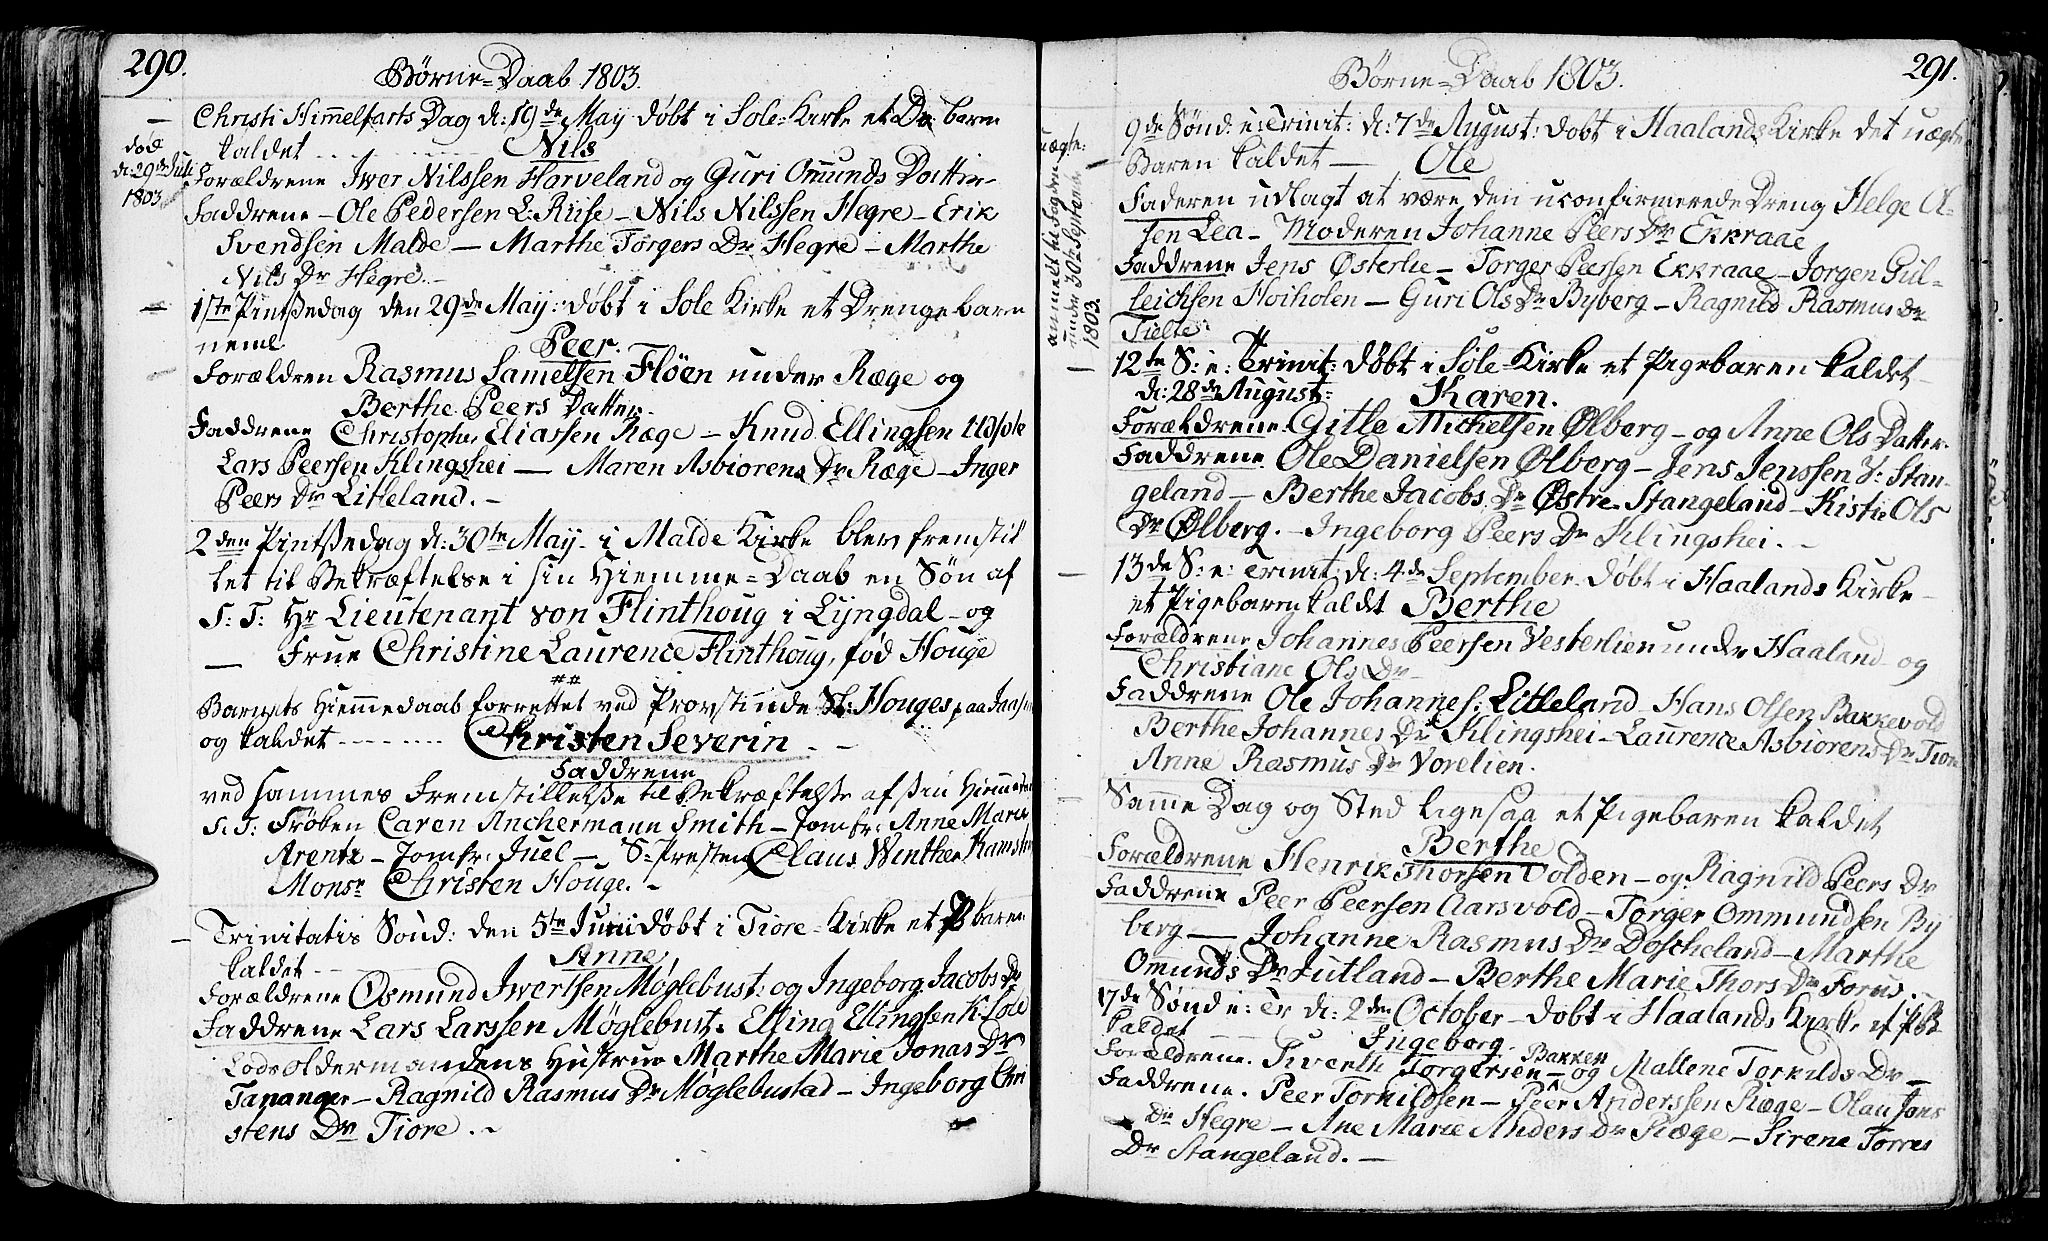 290.
Børne=Daab 1803.
Christi Himmelfarts Dag d: 19de May døbt i Sole=Kirke et Dr barn
død
d: 29de Juli
1803
kaldet - - - Nils
Forældrene Iwer Nilssen Harveland og Guri Omunds Datter-
Faddrene - Ole Pedersen L: Riise - Nils Nilssen Hegre - Erik
Svendsen Malde - Marthe Torgers Dr Hegre - Marthe
Nils Dr Hegre. -
1ste Pintsedag den 29de May: døbt i Sole Kirke et Drengebarn
neml.
Peer.
Forældren Rasmus Samelsen Fløen under Ræge og
Berthe Peers Datter.
Faddrene Christopher Eliassen Ræge - Knud Ellingsen Udsole
Lars Peersen Klingshei - Maren Asbiorens Dr Ræge - Inger
Peers Dr Litleland. -
2den Pintsedag d: 30te May i Malde Kirke blev fremstil
let til Bekræftelse i sin Hiemme=Daab en Søn af
S: T: Hr Lieutenant von Flinthoug i Lyngdal - og
Frue Christine Laurence Flinthoug, fød Houge
Barnets Hiemmedaab forrettet ved Provstinde Sl: Houges paa
og kaldet - - - Christen Severin. -
Faddrene
ved sammes Fremstillelse til Bekræftelse af sin Hiemme
S: T: Frøken Caren Anchermann Smith - Jomfr: Anne Marie
Arentz - Jomfr: Juel - S: Presten Claus Winther
Monsr Christen Houge. -
Trinitatis Sønd: den 5te Juni døbt i Tiore=Kirke et P baren
kaldet - - Anne
Forældrene Osmund Iwertsen Møglebust: og Ingeborg Jacobs Dr
Faddrene Lars Larssen Møglebust. Elling Ellingsen K: Sole
Lods Oldermandens Hustrue Marthe Marie Jonas Dr
Tananger - Ragnild Rasmus Dr Møglebustad - Ingeborg Chri
stens Dr Tiore. -
291.
Børne=Daab 1803.
uægte:
anmeldt til Fogden
under 30te September
1803.
9de Sønd: e: Trinit: d: 7de August: døbt i Haalands Kirke det uægte
Baren kaldet - Ole
Faderen udlagt at være den uconfirmerede Dreng Helge O-
sen Lea - Moderen Johanne Peers Dr Ekkraae
Faddrene Jens Østerlie - Torger Peersen Ekkraae - Jorgen Gul-
leichsen Hoiholen - Guri Ols Dr Byberg - Ragnild Rasmus Dr
Tielte:
12te S: e: Trinit: døbt i Sole=Kirke et Pigebaren kaldet
d: 28de August: Karen.
Forældrene Gitle Michelsen Ølberg - og Anne Ols Datter.
Faddrene Ole Danielsen Ølberg - Jens Jenssen V: Stan-
geland - Berthe Jacobs Dr Østre Stangeland - Kistie Ols
Dr Ølberg. - Ingeborg Peers Dr Klingshei. -
13de S: e: Trinit: d: 4de September døbt i Haalands Kirke
et Pigebaren kaldet Berthe
Forældrene Johannes Peersen Vesterlien under Haaland og
Christiane Ols Dr
Faddrene Ole Johannes: Litleland - Hans Olsen Bakkevold
Berthe Johannes Dr Klingshei - Laurence Asbiorens Dr Tiore
Anne Rasmus Dr Vorelien.
Samme Dag og Sted ligesaa et Pigebaren kaldet
Berthe
Forældrene Henrik Thorsen Volden - og Ragnild Peers Dr
Faddrene Peer Peersen Aarsvold - Torger Ommundsen By
berg - Johanne Rasmus Dr - Marthe
Omunds Dr Jutland - Berthe Marie Thors Dr Forus. -
17de Sønd e: Tr d: 2den October - døbt i Haalands Kirke et PB
kaldet
Ingeborg.
Forældrene. Siverth Torgersen Bakken - og Mallene Torkilds Dr
Faddrene. Peer Torkildsen - Peer Anderssen Ræge - Olau Jons
Dr Hegre - Ane Marie Anders Dr Ræge - Sirene Torres
Dr Stangeland. -